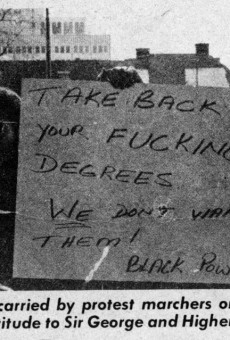 TAKE BACK
YOUR FUCKING
DEGREES
WE DON'T WANT
THEM!
BLACK POW
carried by protest marchers o
titude to Sir George and Higher